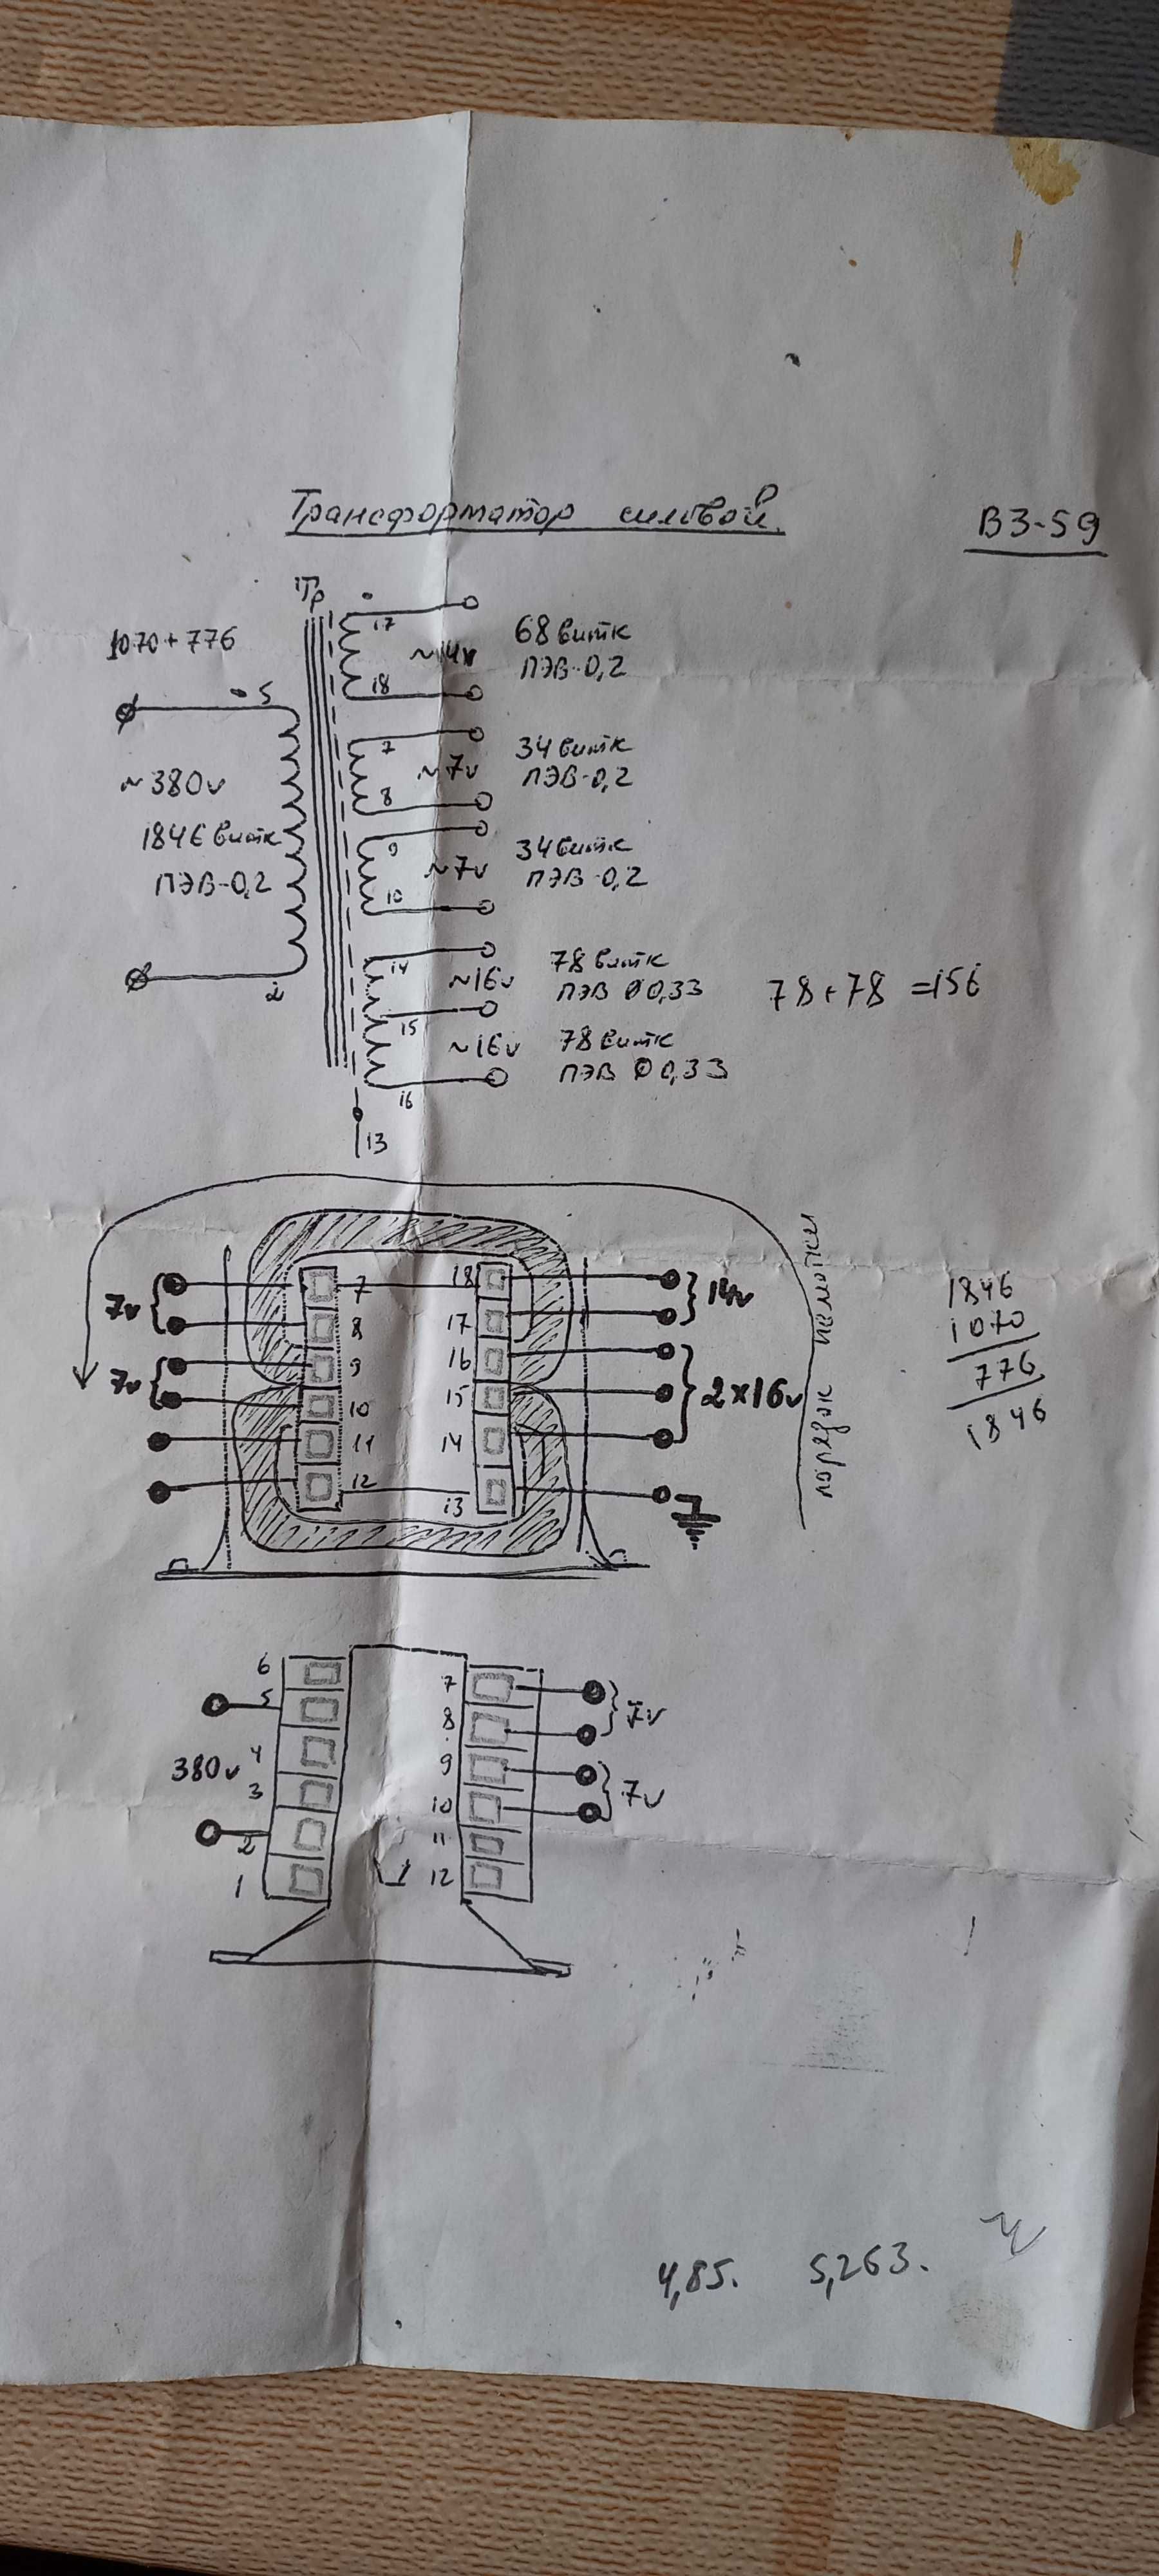 Трансформатор силовой.
В3-59
Тр
1070+776
17
~14v
68 витк
ПЭВ-0,2
18
5
~380v
1846 витк
ПЭВ-0,2
2
7
~7v
34 витк
ПЭВ-0,2
8
9
~7v
34 витк
ПЭВ-0,2
10
14
~16v
78 витк
ПЭВ Ø0,33
78+78=156
15
~16v
78 витк
ПЭВ Ø0,33
16
13
порядок намотки
7v
7
18
14v
8
17
7v
9
16
2x16v
10
15
11
14
12
13
1846
1070
776
1846
6
7
7v
5
8
380v
4
9
7v
3
10
2
11
1
12
4,85.
5,263.